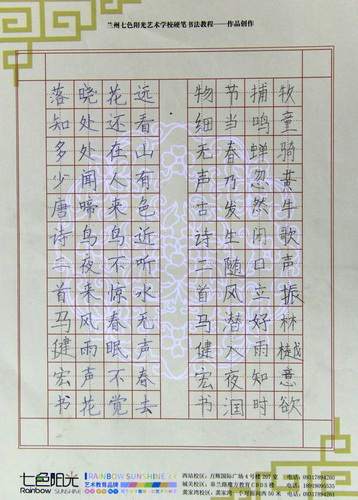 兰州七色阳光艺术学校硬笔书法教程——作品创作
牧童骑黄牛歌声振林樾意欲
捕鸣蝉忽然闭口立好雨知时
节当春乃发生随风潜入夜润
物细无声古诗二首马健宏书
远看山有色近听水无声春去
花还在人来鸟不惊春眠不觉
晓处处闻啼鸟夜来风雨声花
落知多少唐诗二首马健宏书
七色阳光
Rainbow SUNSHINE
RAINBOW SUNSHINE
艺术教育品牌
西站校区：万辉国际广场4号楼207室 电话：09317894260